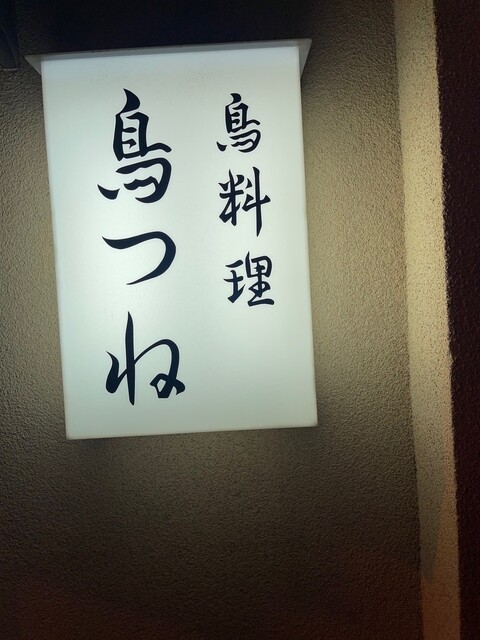 鳥料理
鳥つね